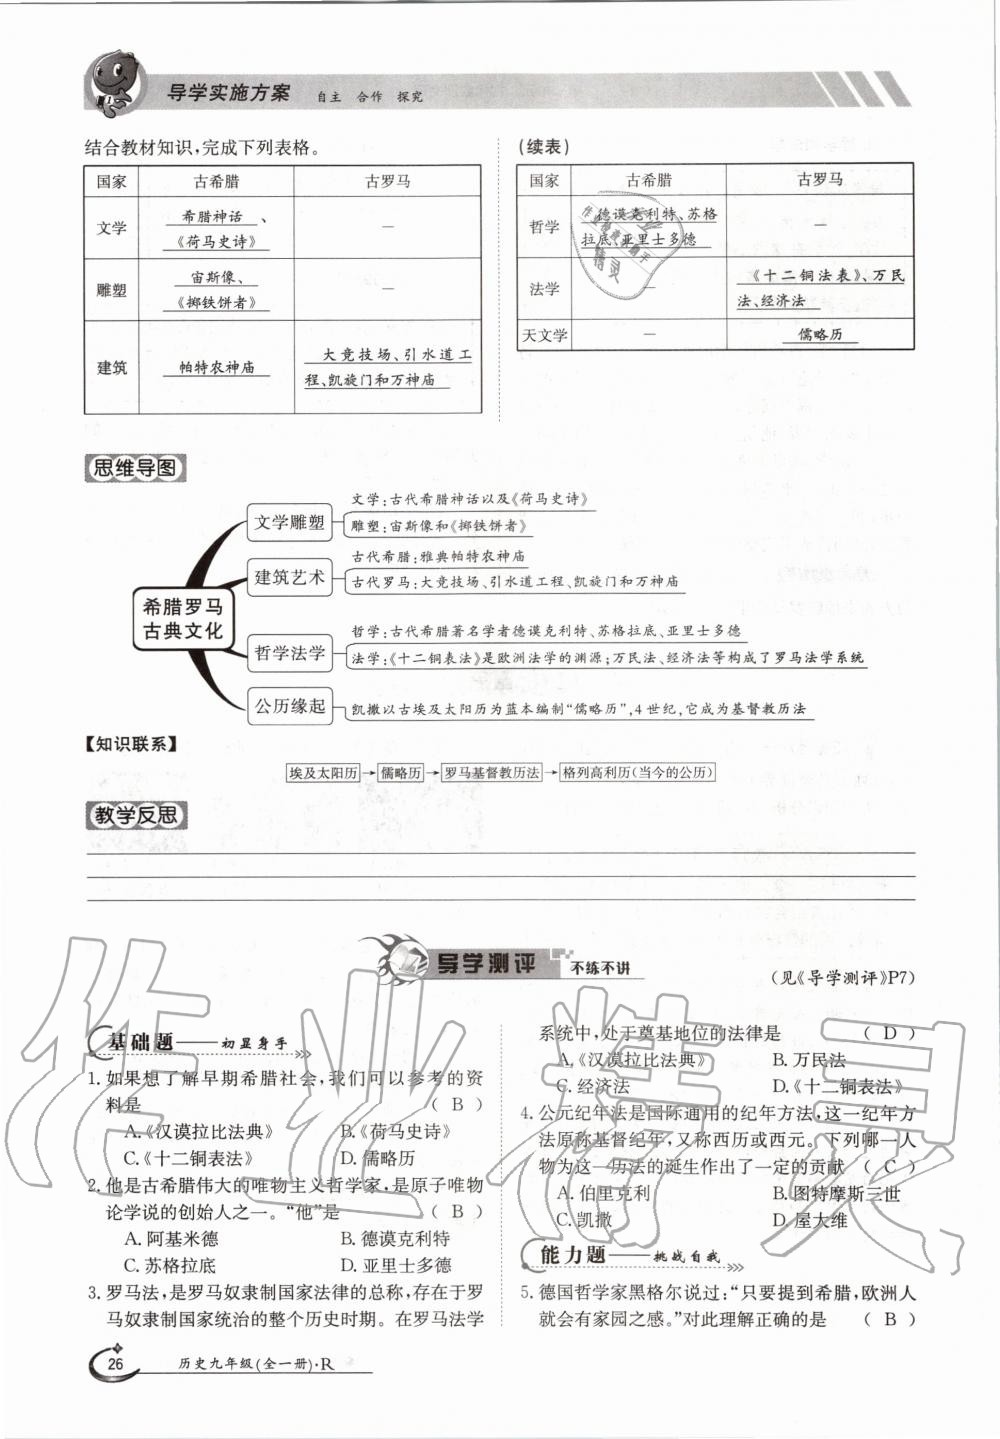 导学实施方案 自主 合作 探究
结合教材知识,完成下列表格。
国家 古希腊 古罗马
文学 希腊神话、《荷马史诗》 —
雕塑 宙斯像、《掷铁饼者》 —
建筑 帕特农神庙 大竞技场、引水道工程、凯旋门和万神庙
(续表)
国家 古希腊 古罗马
哲学 德谟克利特、苏格拉底、亚里士多德 —
法学 — 《十二铜法表》、万民法、经济法
天文学 — 儒略历
思维导图
希腊罗马古典文化
文学雕塑
文学:古代希腊神话以及《荷马史诗》
雕塑:宙斯像和《掷铁饼者》
建筑艺术
古代希腊:雅典帕特农神庙
古代罗马:大竞技场、引水道工程、凯旋门和万神庙
哲学法学
哲学:古代希腊著名学者德谟克利特、苏格拉底、亚里士多德
法学:《十二铜表法》是欧洲法学的渊源;万民法、经济法等构成了罗马法学系统
公历缘起
凯撒以古埃及太阳历为蓝本编制“儒略历”,4世纪,它成为基督教历法
【知识联系】
埃及太阳历→儒略历→罗马基督教历法→格列高利历(当今的公历)
教学反思
导学测评 不练不讲
(见《导学测评》P7)
基础题——初显身手
1. 如果想了解早期希腊社会,我们可以参考的资
料是 ( B )
A.《汉谟拉比法典》 B.《荷马史诗》
C.《十二铜表法》 D. 儒略历
2. 他是古希腊伟大的唯物主义哲学家,是原子唯物
论学说的创始人之一。“他”是 ( B )
A. 阿基米德 B. 德谟克利特
C. 苏格拉底 D. 亚里士多德
3. 罗马法,是罗马奴隶制国家法律的总称,存在于罗
马奴隶制国家统治的整个历史时期。在罗马法学
系统中,处于奠基地位的法律是 ( D )
A.《汉谟拉比法典》 B. 万民法
C. 经济法 D.《十二铜表法》
4. 公元纪年法是国际通用的纪年方法,这一纪年方
法原称基督纪年,又称西历或西元。下列哪一人
物为这一历法的诞生作出了一定的贡献 ( C )
A. 伯里克利 B. 图特摩斯三世
C. 凯撒 D. 屋大维
能力题——挑战自我
5. 德国哲学家黑格尔说过:“只要提到希腊,欧洲人
就会有家园之感。”对此理解正确的是 ( B )
26 历史九年级(全一册)·R
作业精灵